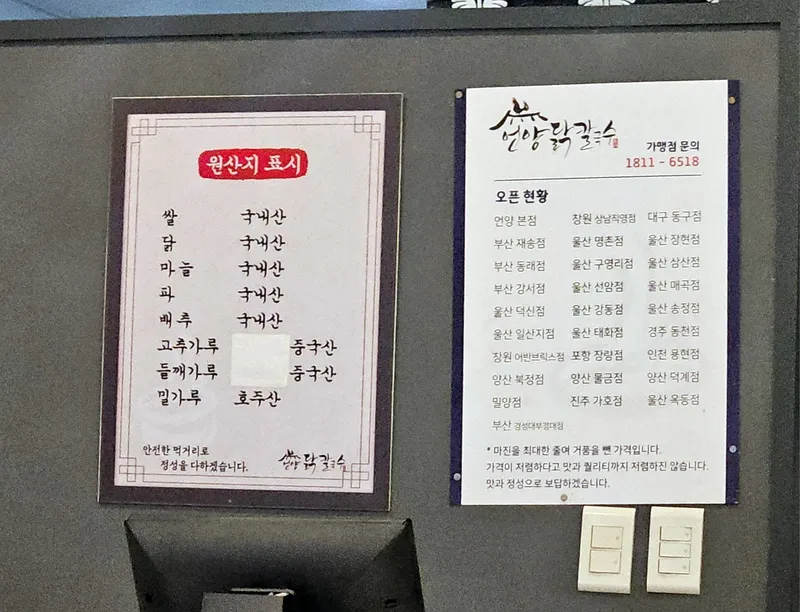 원산지 표시
쌀 국내산
닭 국내산
마늘 국내산
파 국내산
배추 국내산
고추가루 중국산
들깨가루 중국산
밀가루 호주산
안전한 먹거리로
정성을 다하겠습니다.
언양닭칼국수
언양닭칼국수
가맹점 문의
1811 - 6518
오픈 현황
언양 본점 창원 상남직영점 대구 동구점
부산 재송점 울산 명촌점 울산 장현점
부산 동래점 울산 구영리점 울산 삼산점
부산 강서점 울산 선암점 울산 매곡점
울산 덕신점 울산 강동점 울산 송정점
울산 일산지점 울산 태화점 경주 동천점
창원 어반브릭스점 포항 장량점 인천 용현점
양산 북정점 양산 물금점 양산 덕계점
밀양점 진주 가호점 울산 옥동점
부산 경성대부경대점
* 마진을 최대한 줄여 거품을 뺀 가격입니다.
가격이 저렴하다고 맛과 퀄리티까지 저렴하진 않습니다.
맛과 정성으로 보답하겠습니다.